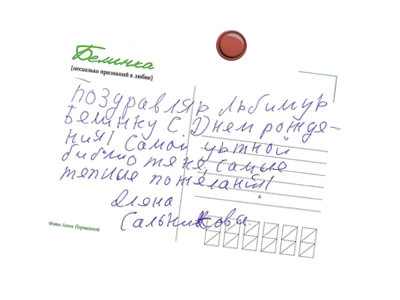 Белинка
[несколько признаний в любви]
Поздравляю любимую
Белинку С Днем рожде-
ния! Самой уютной
библиотеке, самые
теплые пожелания!
Сальникова
Фото Анны